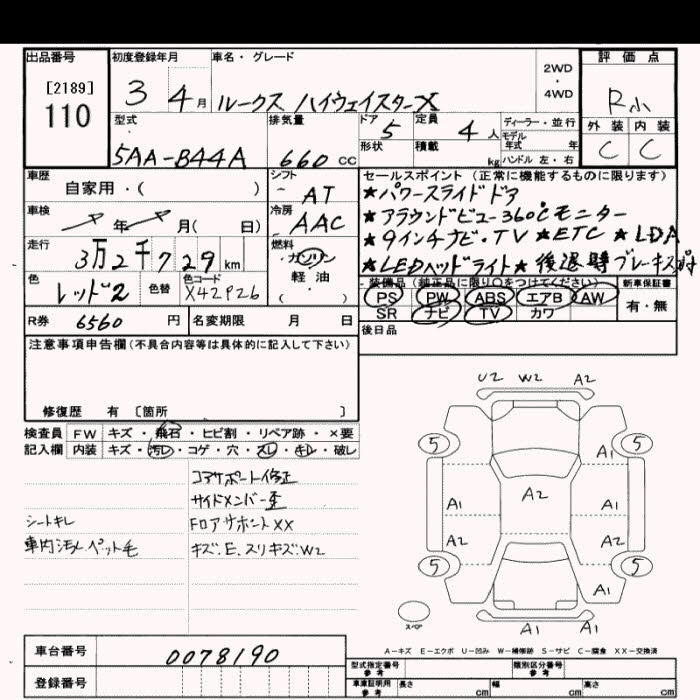 出品番号
[2189]
110
初度登録年月
3 4月
車名・グレード
ルークス ハイウェイスターX
2WD
・
4WD
評価点
R小
外装 内装
C C
型式
5AA-B44A
排気量
660 CC
ドア 5
形状
定員 4人
積載 kg
ディーラー・並行
モデル年式 年
ハンドル 左・右
車歴
自家用・( )
シフト
AT
車検
年 月( 日)
冷房
AAC
走行
3万2千729km
燃料
ガソリン
軽油
・( )
色
レッド2
色替
色コード
X42P26
R券 6560 円
名変期限 月 日
セールスポイント (正常に機能するものに限ります)
★パワースライドドア
★アラウンドビュー360℃モニター
★9インチナビ・TV ★ETC ★LDA
★LEDヘッドライト★後退時ブレーキス付
装備品 (純正品に限り○をつけてください)
PS PW ABS エアB AW
SR ナビ TV カワ
新車保証書
有・無
後日品
注意事項申告欄(不具合内容等は具体的に記入して下さい)
修復歴 有 〔箇所 〕
検査員記入欄
FW キズ・飛石・ヒビ割・リペア跡・×要
内装 キズ・汚レ・コゲ・穴・スレ・キレ・破レ
コアサポート修正
サイドメンバー歪
シートキレ
FロアサポートXX
車内汚レ ペット毛
キズ.E.スリキズ.W2
U2 W2 A2
5 5
A1
A2
A1 A1
A2 A2
5 5
A1
A1 A1
スペア
A-キズ E-エクボ U-凹み W-補修跡 S-サビ C-腐食 XX-交換済
車台番号 0078190
登録番号
型式指定番号 参考
類別区分番号 参考
車庫証明用 参考
長さ cm 幅 cm 高さ cm